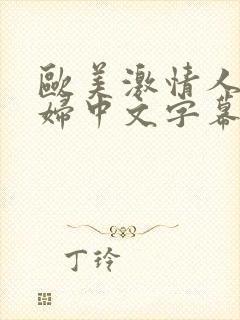 歐美激情人
婦中文字幕
丁玲